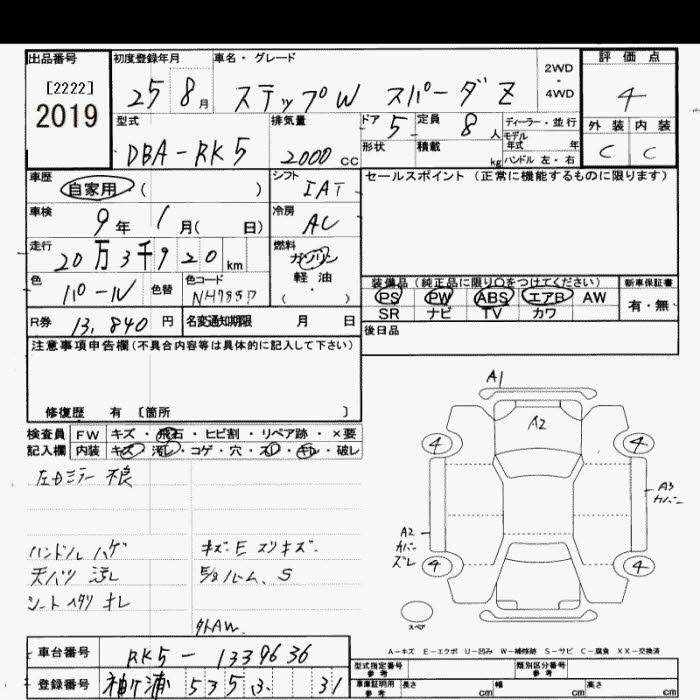 出品番号 初度登録年月 車名・グレード 2WD・4WD 評価点
[2222]
2019 25 8月 ステップW スパーダZ 4
型式 排気量 ドア 5 定員 8人 ディーラー・並行 外装 内装
DBA-RK5 2000cc 形状 積載 kg モデル年式 年 C C
ハンドル 左・右
車歴 自家用 ( ) シフト IAT セールスポイント (正常に機能するものに限ります)
車検 9年 1月( 日) 冷房 AC
走行 20万3千920km 燃料 ガソリン
軽油
( )
色 パール 色替 色コード NH788P 装備品 (純正品に限り○をつけてください) 新車保証書
PS PW ABS エアB AW 有・無
SR ナビ TV カワ
R券 13,840円 名変通知期限 月 日 後日品
注意事項申告欄(不具合内容等は具体的に記入して下さい)
修復歴 有 〔箇所 〕
検査員 FW キズ・飛石・ヒビ割・リペア跡・×要
記入欄 内装 キズ・汚レ・コゲ・穴・スレ・キレ・破レ
左Dミラー 不良
ハンドル ハゲ キズ-E スリキズ-
天バリ 汚レ
シート ヘタリ
外AW
A1
A2
4 4
A3
カバー
A2
カバー
ズレ
4 4
スペア
A-キズ E-エクボ U-凹み W-補修跡 S-サビ C-腐食 XX-交換済
車台番号 RK5-1339636 型式指定番号 参考 類別区分番号 参考
登録番号 袖ヶ浦 535 ひ 31 車庫証明用 参考 長さ cm 幅 cm 高さ cm